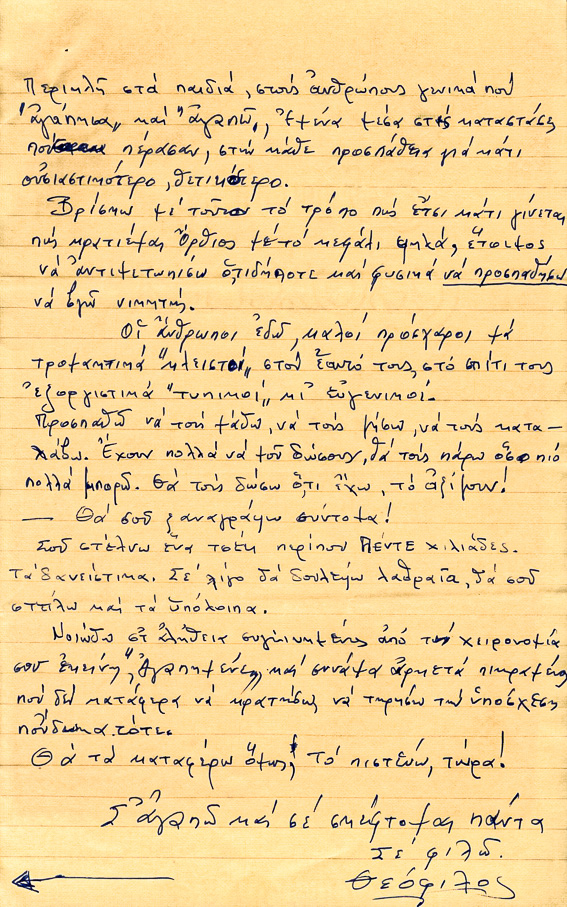 Περικλῆ στά παιδιά, στούς ἀνθρώπους γενικά πού
"ἀγάπησα,, καί "ἀγαπῶ,, Ἐμένα μέσα στίς καταστάσεις
πού πέρασαν, στήν κάθε προσπάθεια γιά κάτι
οὐσιαστικότερο, θετικότερο.
Βρίσκω μέ τοῦτον τό τρόπο πώς ἔτσι κάτι γίνεται
πώς κρατιέμαι Ὄρθιος μέ τό κεφάλι ψηλά, ἕτοιμος
νά ἀντιμετωπίσω ὅ,τιδήποτε καί φυσικά νά προσπαθήσω
νά βγῶ νικητής.
Οἱ ἄνθρωποι ἐδῶ, καλοί πρόσχαροι μά
τρομακτικά "κλειστοί,, στόν ἑαυτό τους, στό σπίτι τους
ἐξοργιστικά "τυπικοί,, κι' εὐγενικοί.
Προσπαθῶ νά τούς μάθω, νά τούς, νά τούς κατα-
λάβω. Ἔχουν πολλά νά μοῦ δώσουν, θά τούς πάρω ὅσο πιό
πολλά μπορῶ. Θά τούς δώσω ὅ,τι ἔχω, τό ἀξίζουν!
— Θά σοῦ ξαναγράψω σύντομα!
Σοῦ στέλνω ἕνα τσέκ περίπου ΠΕΝΤΕ χιλιάδες.
Τά δανείστικα. Σέ λίγο θά δουλεύω λαθραῖα, θά σοῦ
στείλω καί τά ὑπόλοιπα.
Νοιώθω στ' ἀλήθεια συγκινημένος ἀπό τήν χειρονομία
σου ἐκείνη, Ἀγαπημένε, καί συνάμα ἀρκετά πικραμένος
πού δέν κατάφερα νά κρατήσω νά τηρήσω τήν ὑπόσχεση
πού 'δωσα τότε.
Θά τά καταφέρω ὅμως, Τό πιστεύω, τώρα!
Σ' ἀγαπῶ καί σέ σκέφτομαι πάντα
Σέ φιλῶ.
Θεόφιλος